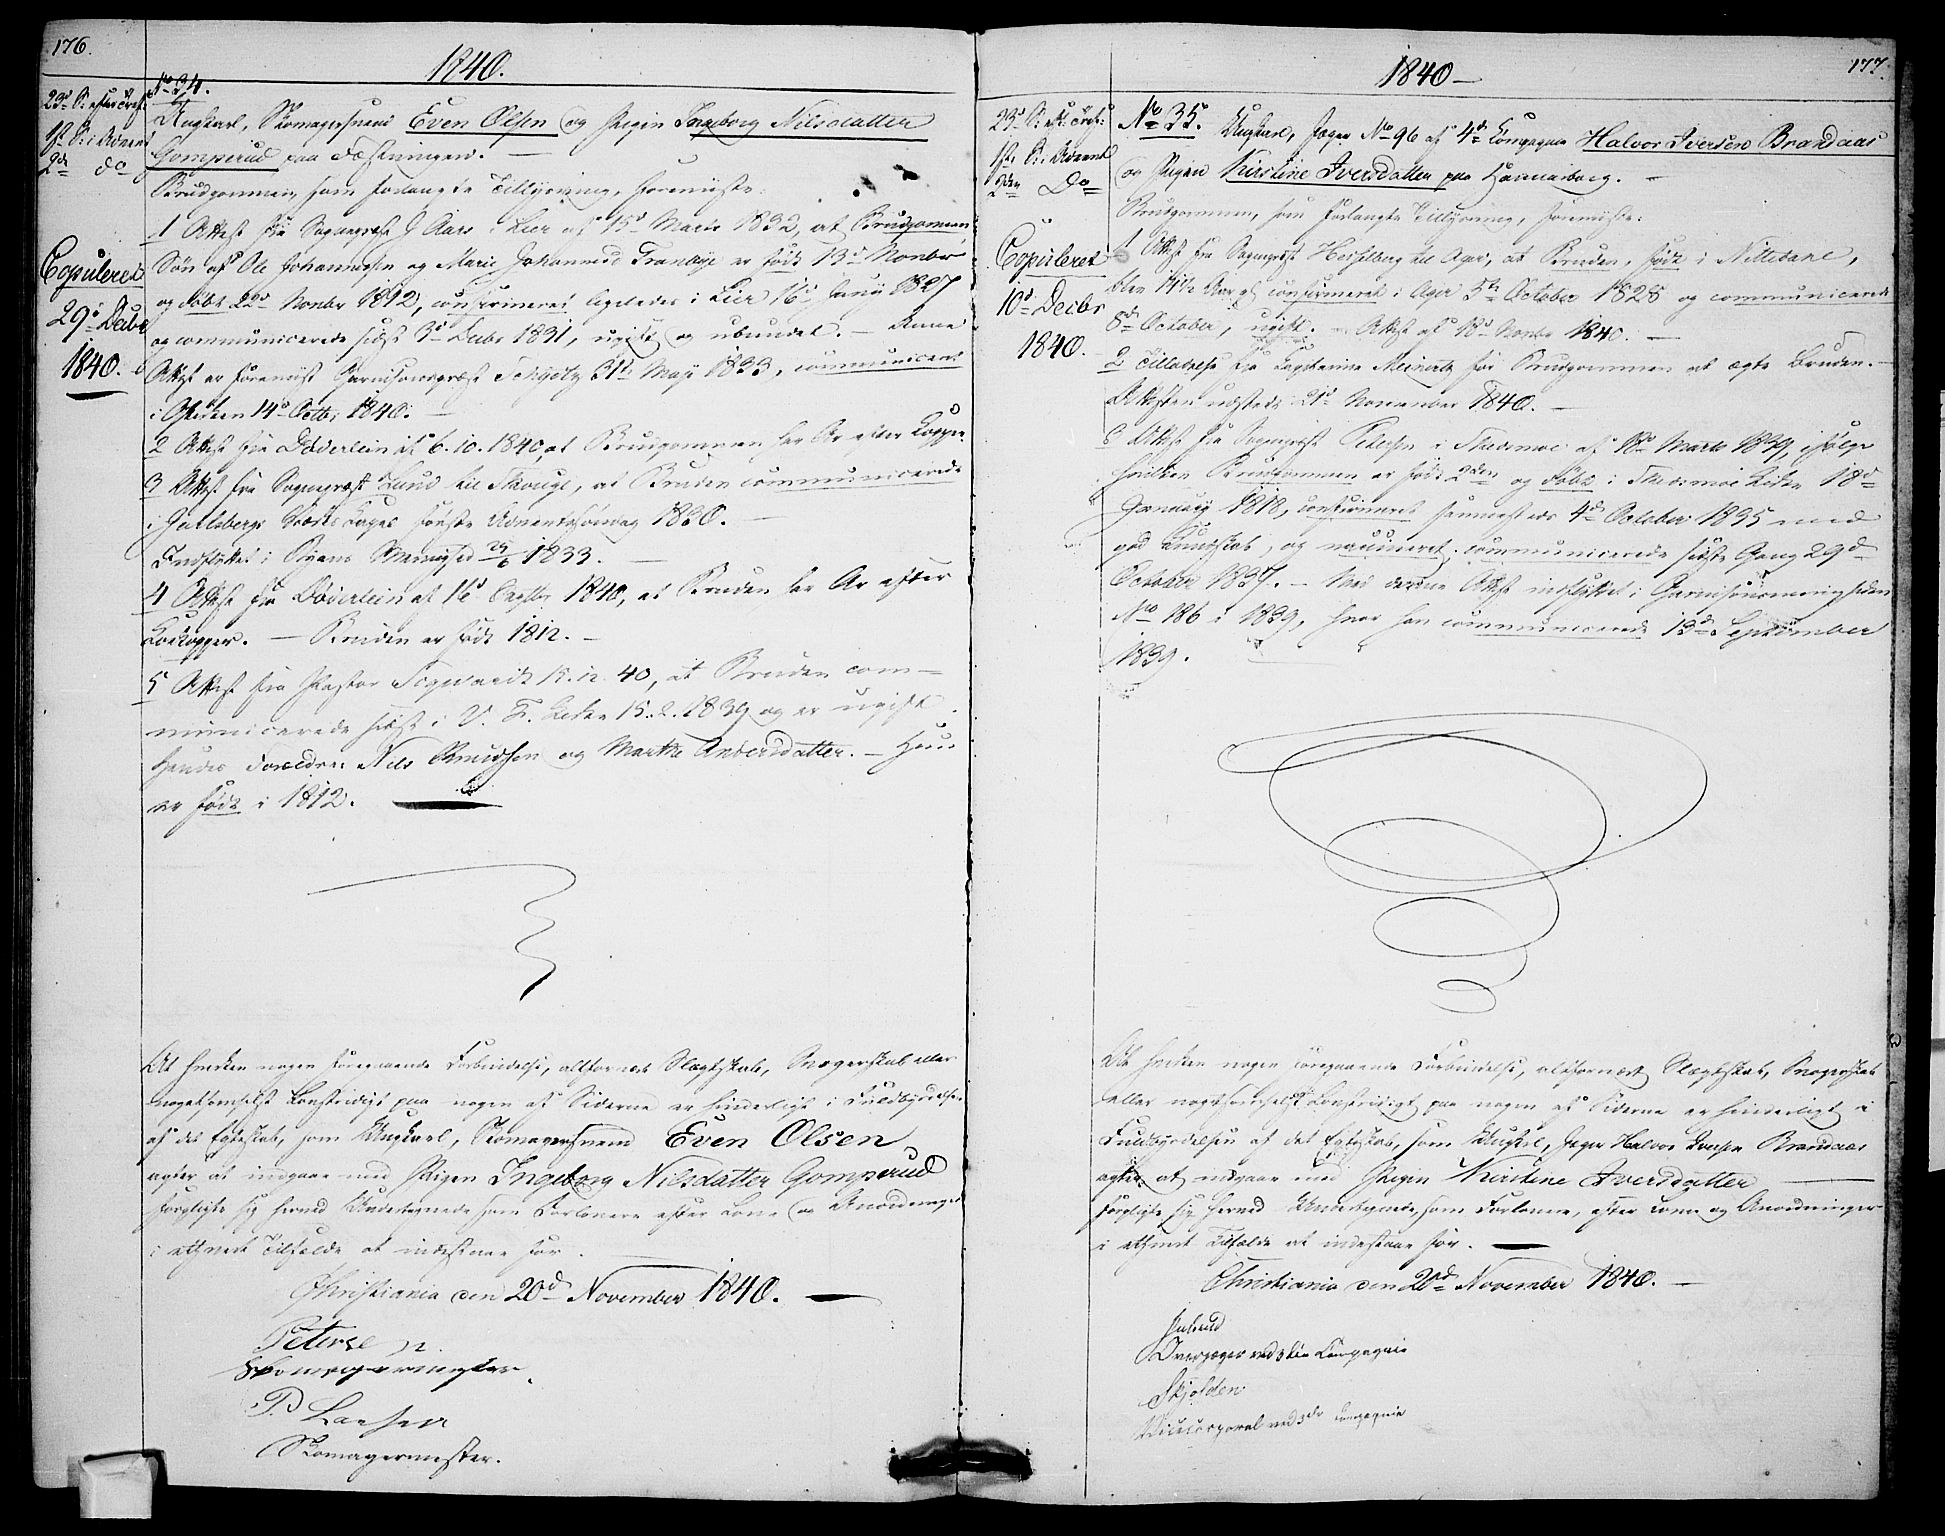 176.
1840.
23d S: efter Tref:
1st S: i Advent
2d do
Copuleret
29d Decbr
1840.
No 34.
Ungkarl, Skomagersvend Even Olsen og Pigen Ingeborg Nilsdatter
Gomperud paa Fæstningen. —
Brudgommen, som forlangte Tillysning, foreviiste:
1 Attest fra Sognepræst J Aars i Lier af 15d Marts 1832, at Brudgommen
Søn af Ole Johannessen og Marie Johannesd Tranbye er født 13d Novbr
og døbt 22d Novbr 1812, confirmeret ligeledes i Lier 16d 1827
og communicerede sidst 3d Decbr 1831, ugift og ubundet. — Denne
Attest er foreviist Garnisonspræst 31te Maji 1833, communiceret
i Kirken 14d Octbr 1840. —
2 Attest fra Døderlein af 6.10.1840, at Brudgommen har Ar efter Kopper
3 Attest fra Sognepræst Lund til Skouge, at Bruden communicerede
i Jarlsbergs Værks Capel første Adventsøndag 1830. —
Indflyttet i Menighed 1833. —
4 Attest fra Døderlein af 1840, at Bruden har Ar efter
Kokopper. — Bruden er født 1812. —
5 Attest fra Pastor 12. 40, at Bruden com=
municerede sidst i V. F. Kirken 15.2.1839 og er ugift.
Hendes Forældre: Nils Knudsen og Marthe Andersdatter. — Hun
er født i 1812.
At hverken nogen foregaaende Forbindelse, altfornært Slægtskab, Svogerskab eller
nogetsomhelst Lovstridigt paa nogen af Siderne er hinderligt i Fuldbyrdelsen
af det Egteskab, som Ungkarl, Skomagersvend Even Olsen
agter at indgaae med Pigen Ingeborg Nilsdatter Gomperud
forpligte sig herved Undertegnede som Forlovere efter Love og Anordninger
i ethvert Tilfælde at indestaae for.
Christiania den 20d November 1840. —
Petersen.
Skomagermester.
P. Larsen
Skomagermester.
1840 —
177.
23d S: eft: Tref:
1st S: i Advent
2den Do
Copuleret
10d Decbr
1840.
No 35. Ungkarl, Jæger No 96 af 4d Compagnie Halvor Iversen Brandaas
og Pigen Kirstine Iversdatter paa Hammersborg. —
Brudgommen, som forlangte Tillysning, foreviiste:
1 Attest fra Sognepræst til Ager, at Bruden, født i Nittedahl,
blev 14½ Aar gl confirmeret i Ager 5te October 1828 og communicerede
8d October, ugift. — Attest af 18d Novbr 1840. —
2 Tilladelse fra Capitaine Meinertz for Brudgommen at ægte Bruden. —
Attesten udstedt 21d November 1840. —
3 Attest fra Sognepræst Petersen i Thedemoe af 18d Marts 1839, ifølge
hvilken Brudgommen er født 2den og døbt i Thedemoe Kirke 18d
Januar 1818, confirmeret sammesteds 4d October 1835 med
god Kundskab, og vaccineret; communicerede sidste Gang 29d
October 1837. — Med denne Attest indflyttet i Garnisonsmenigheden
No 186 i 1839, hvor han communicerede 13d September
1839.
At hverken nogen foregaaende Forbindelse, altfornært Slægtskab, Svogerskab
eller nogetsomhelst Lovstridigt paa nogen af Siderne er hinderligt i
Fuldbyrdelsen af det Egteskab, som Ungkarl, Jæger Halvor Iversen Brandaas
agter at indgaae med Pigen Kirstine Iversdatter —
forpligte sig herved Undertegnede, som Forlovere, efter Love og Anordninger
i ethvert Tilfælde at indestaae for. —
Christiania den 20d November 1840. —
Overjæger ved 3die Compagnie
Skjolden
Vicecorporal ved 3die Compagnie